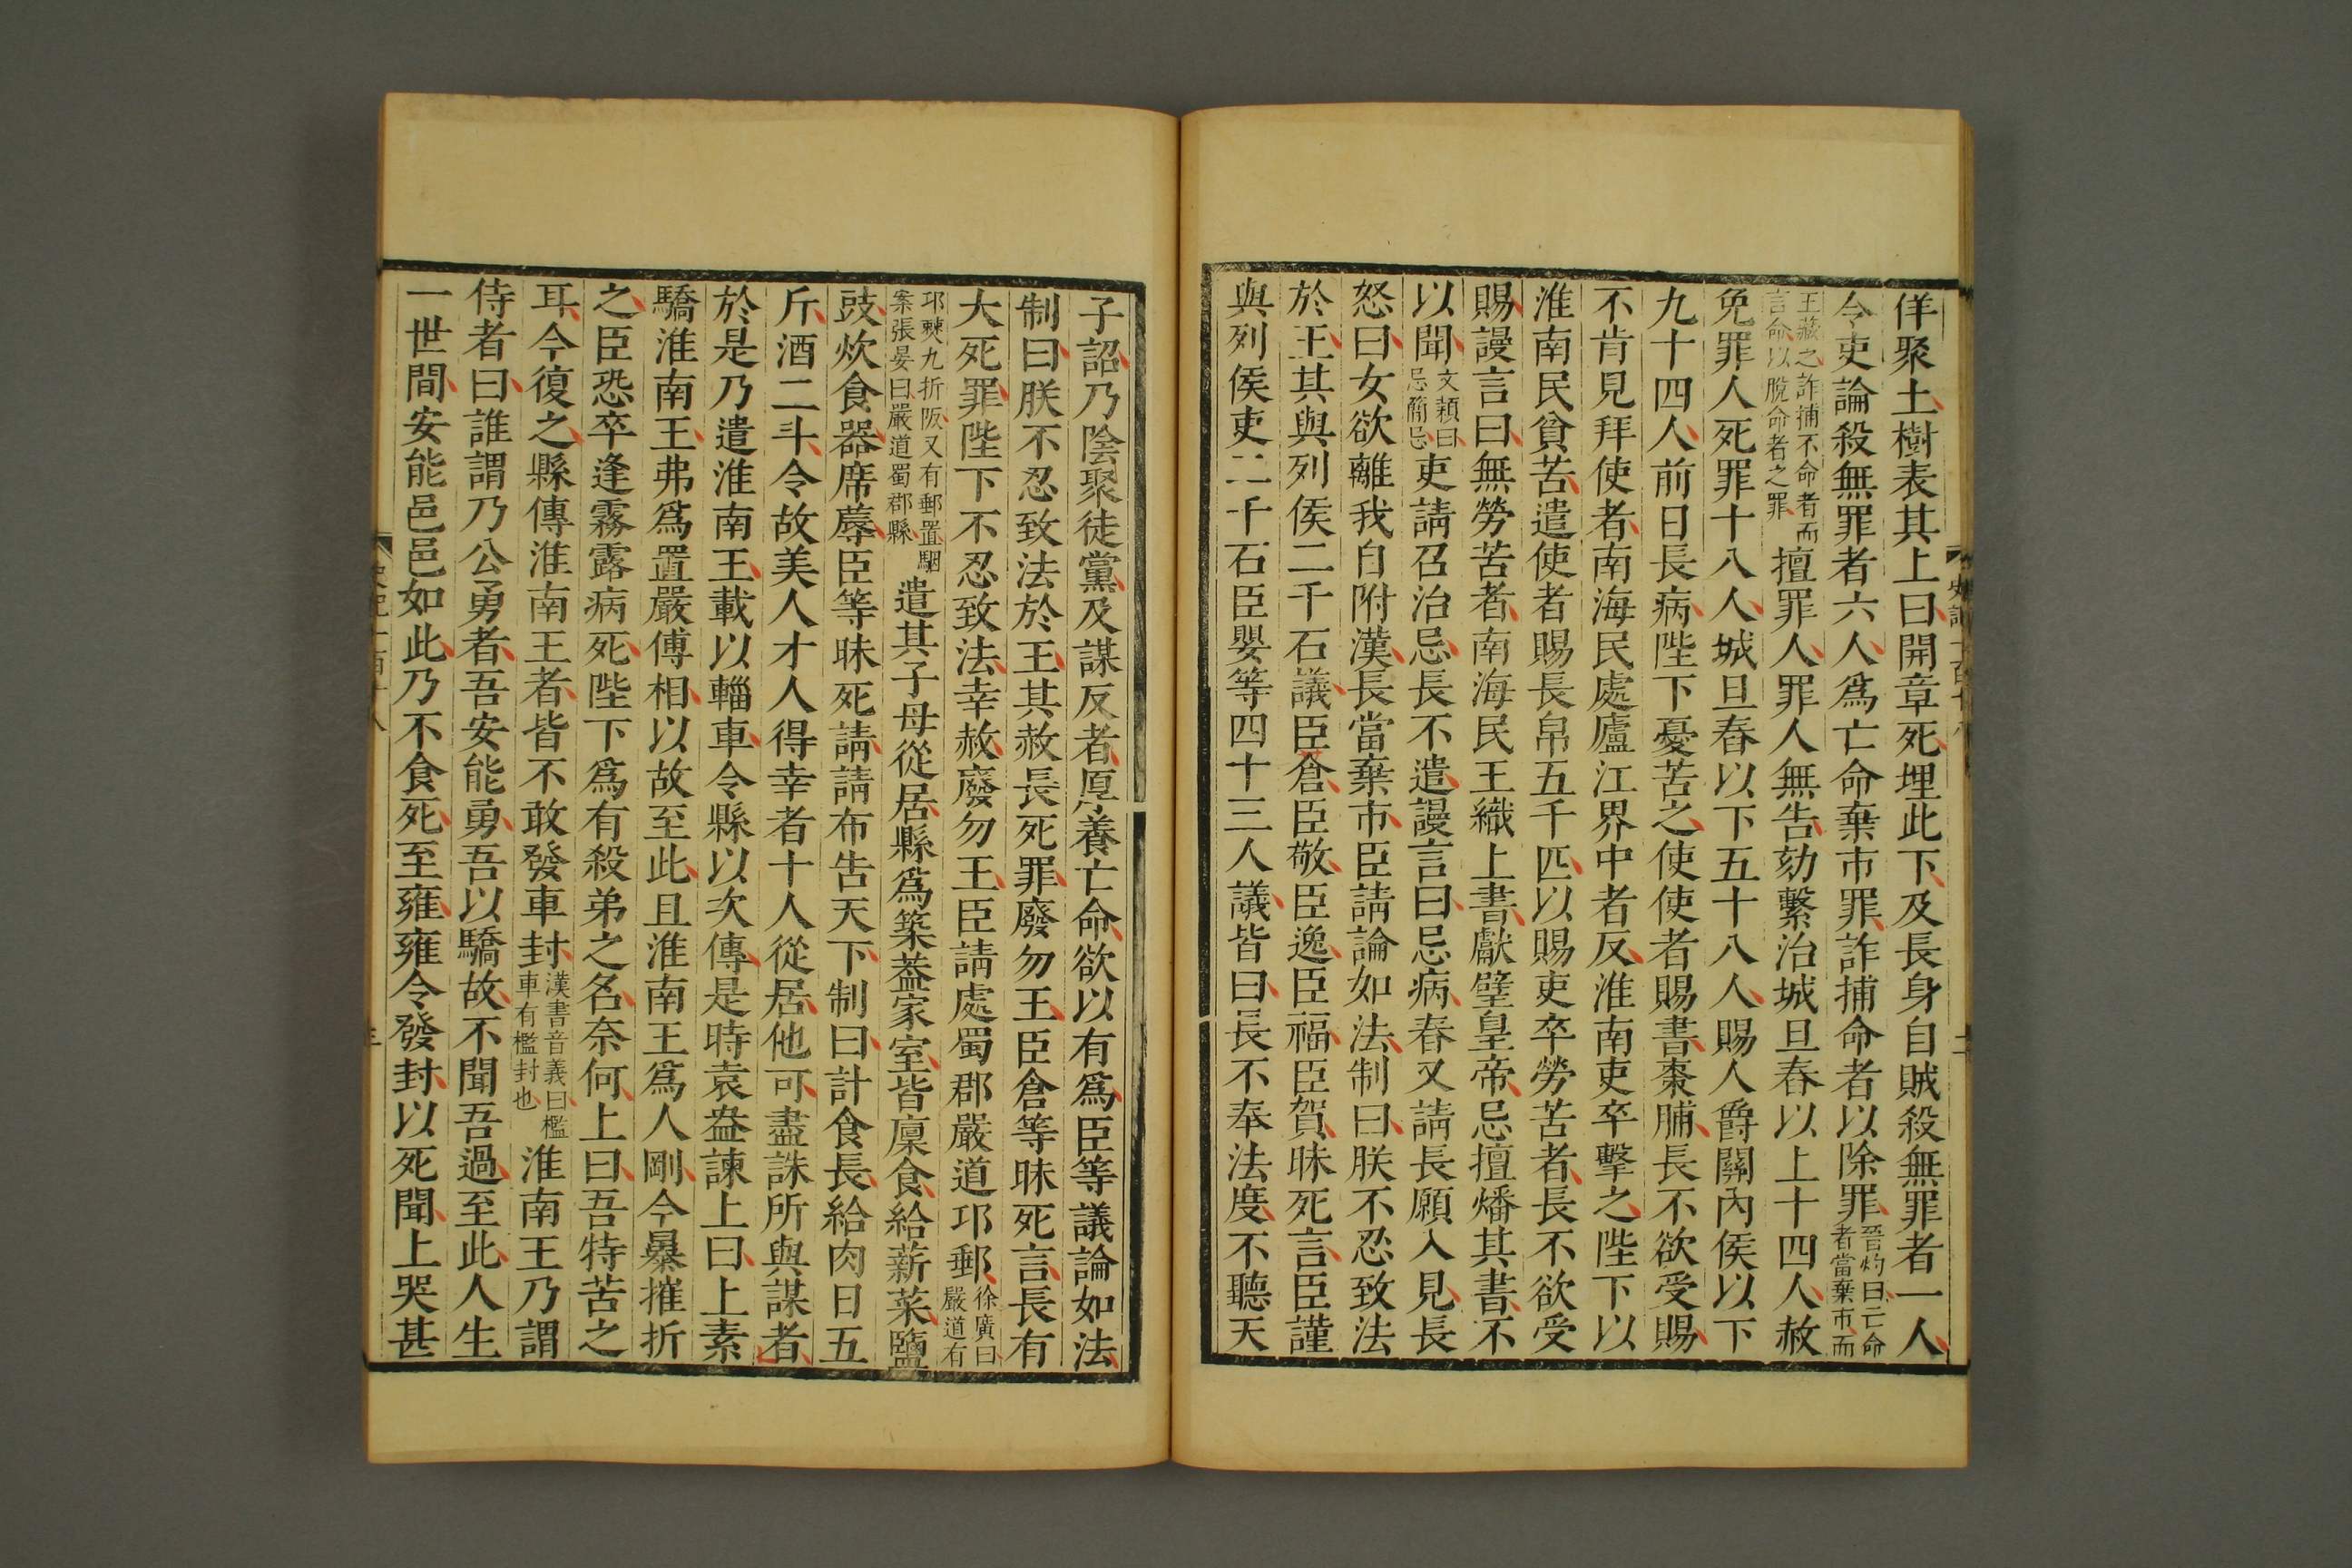 佯聚土樹表其上曰開章死埋此下及長身自賊殺無罪者一人
令吏論殺無罪者六人爲亡命棄市罪詐捕命者以除罪晉灼曰亡命者當棄市而
王藏之詐捕不命者而言命以脫命者之罪擅罪人罪人無告劾繫治城旦舂以上十四人赦
免罪人死罪十八人城旦舂以下五十八人賜人爵關內侯以下
九十四人前日長病陛下憂苦之使使者賜書棗脯長不欲受賜
不肯見拜使者南海民處廬江界中者反淮南吏卒擊之陛下以
淮南民貧苦遣使者賜長帛五千匹以賜吏卒勞苦者長不欲受
賜謾言曰無勞苦者南海民王織上書獻璧皇帝忌擅燔其書不
以聞文穎曰忌蕳忌吏請召治忌長不遣謾言曰忌病春又請長願入見長
怒曰女欲離我自附漢長當棄市臣請論如法制曰朕不忍致法
於王其與列侯二千石議臣倉臣敬臣逸臣福臣賀昧死言臣謹
與列侯吏二千石臣嬰等四十三人議皆曰長不奉法度不聽天
子詔乃陰聚徒黨及謀反者厚養亡命欲以有爲臣等議論如法
制曰朕不忍致法於王其赦長死罪廢勿王臣倉等昧死言長有
大死罪陛下不忍致法幸赦廢勿王臣請處蜀郡嚴道邛郵徐廣曰嚴道有
邛僰九折阪又有郵置駰案張晏曰嚴道蜀郡縣遣其子母從居縣爲築葢家室皆廩食給薪菜鹽
豉炊食器席蓐臣等昧死請請布告天下制曰計食長給肉日五
斤酒二斗令故美人才人得幸者十人從居他可盡誅所與謀者
於是乃遣淮南王載以輜車令縣以次傳是時袁盎諫上曰上素
驕淮南王弗爲置嚴傅相以故至此且淮南王爲人剛今暴摧折
之臣恐卒逢霧露病死陛下爲有殺弟之名奈何上曰吾特苦之
耳今復之縣傳淮南王者皆不敢發車封漢書音義曰檻車有檻封也淮南王乃謂
侍者曰誰謂乃公勇者吾安能勇吾以驕故不聞吾過至此人生
一世間安能邑邑如此乃不食死至雍雍令發封以死聞上哭甚